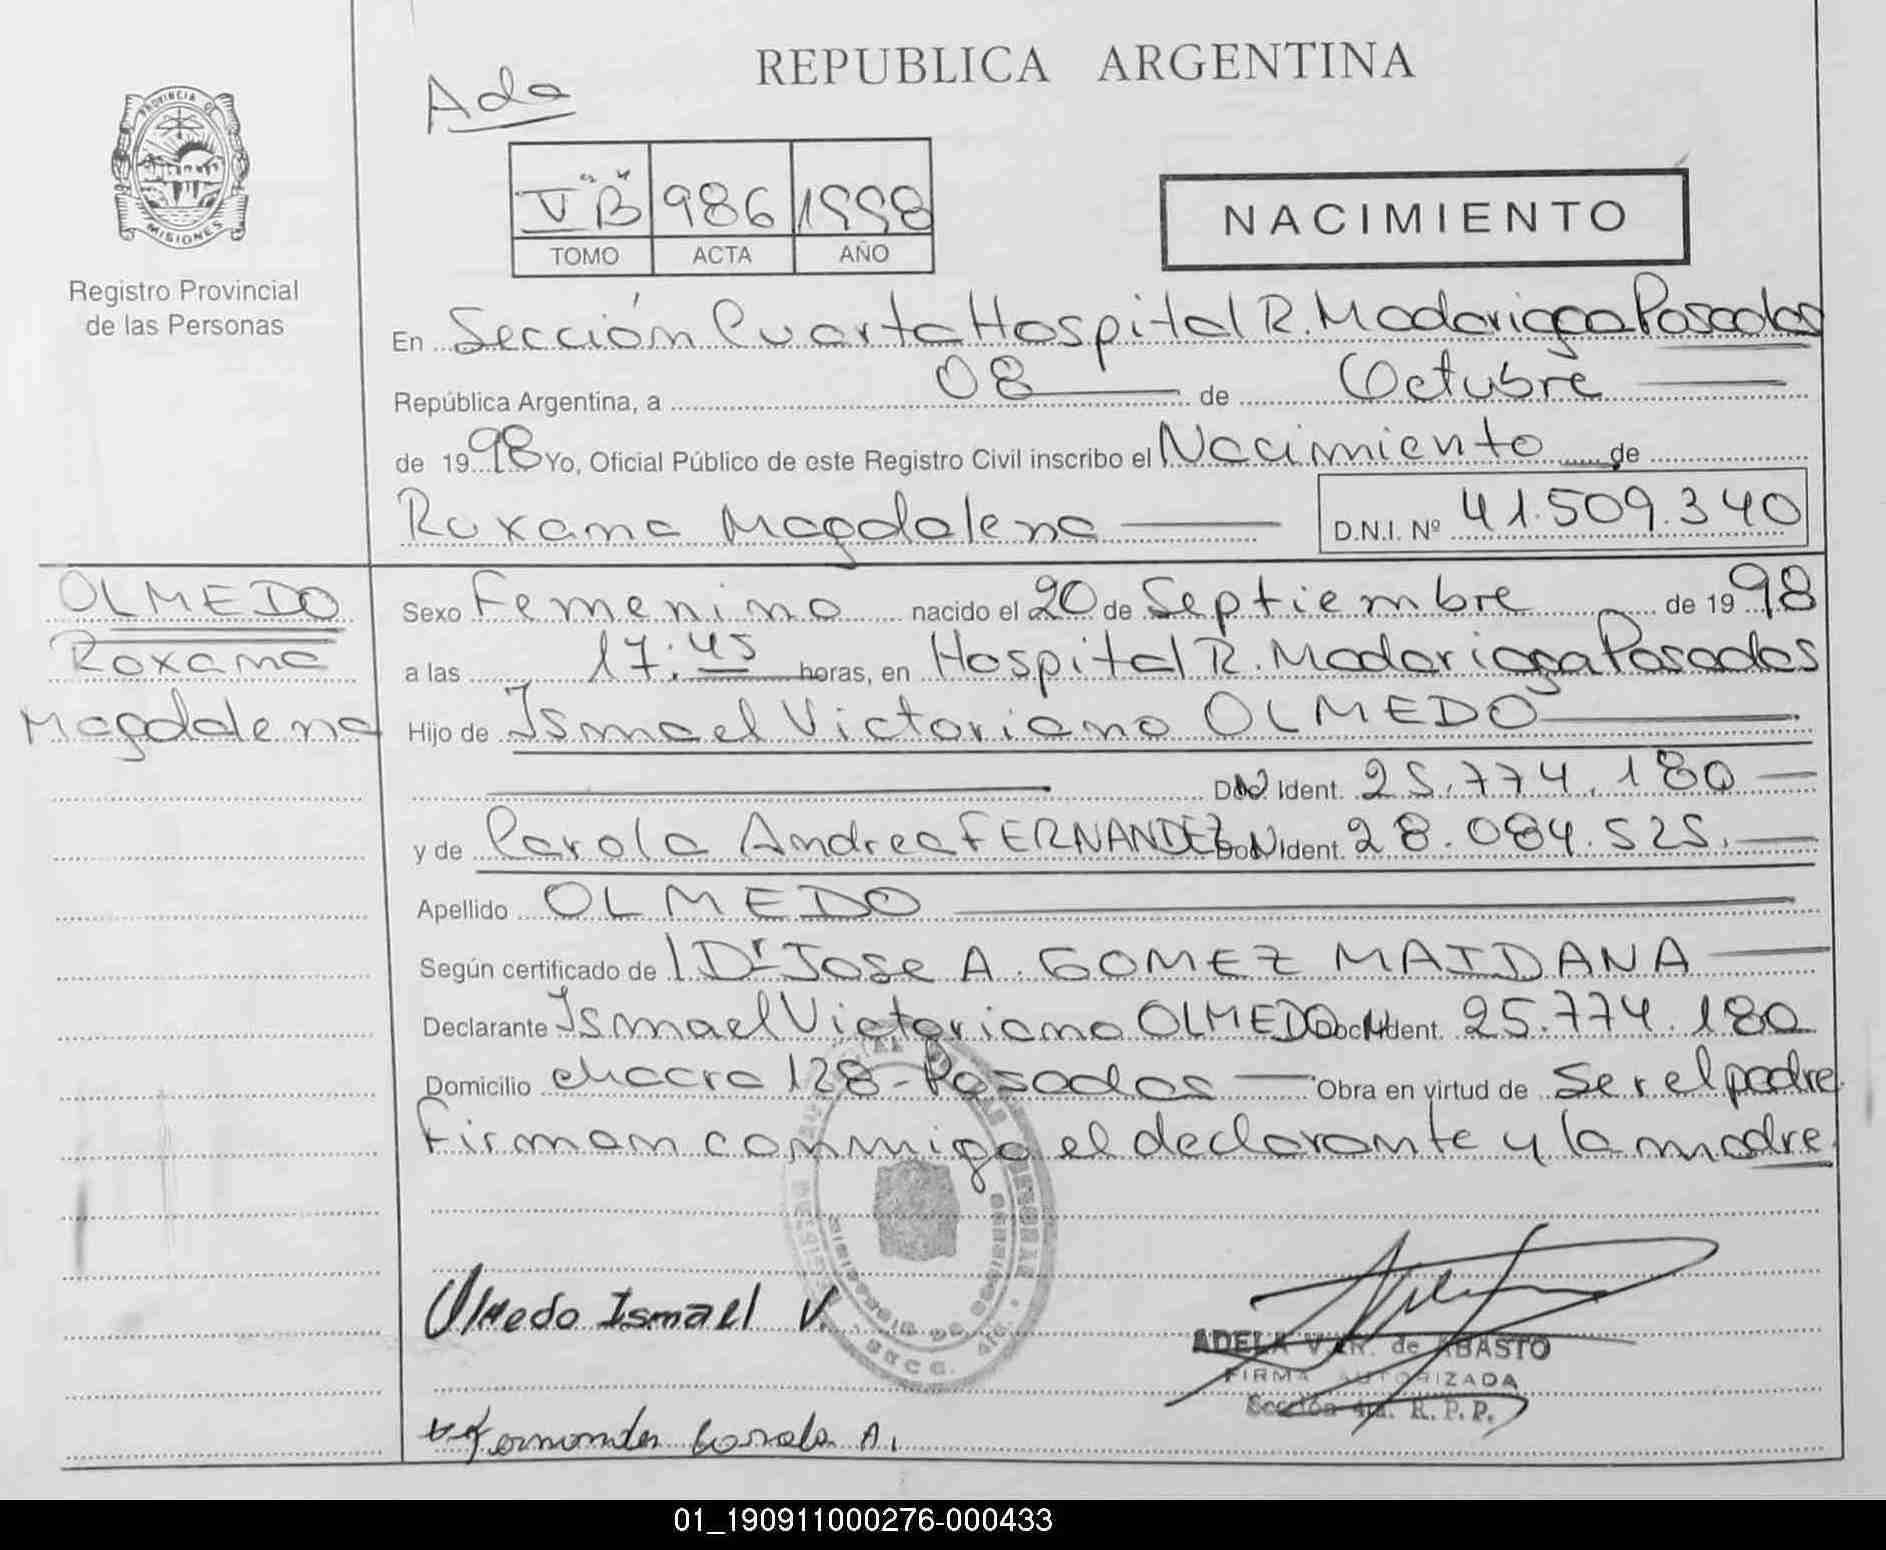 REPUBLICA ARGENTINA
Ada
PROVINCIA DE
MISIONES
Registro Provincial
de las Personas
V "B" 986 1998
TOMO ACTA AÑO
NACIMIENTO
En Sección Cuarta Hospital R. Madariaga Posadas
República Argentina, a 08 de Octubre
de 1998 Yo, Oficial Público de este Registro Civil inscribo el Nacimiento de
Roxana Magdalena D.N.I. Nº 41.509.340
OLMEDO
Roxana
Magdalena
Sexo Femenino nacido el 20 de Septiembre de 1998
a las 17:45 horas, en Hospital R. Madariaga Posadas
Hijo de Ismael Victoriano OLMEDO
Ident. 25.774.180
y de Carola Andrea FERNANDEZ Ident. 28.084.525.
Apellido OLMEDO
Según certificado de Dr Jose A. GOMEZ MAIDANA
Declarante Ismael Victoriano OLMEDO Ident. 25.774.180
Domicilio chacra 128 - Posadas Obra en virtud de Ser el padre
Firman conmigo el declarante y la madre.
Olmedo Ismael V.
ADELA V. de ABASTO
FIRMA AUTORIZADA
Sección 4ta. R.P.P.
Fernandez Carola A.
01_190911000276-000433